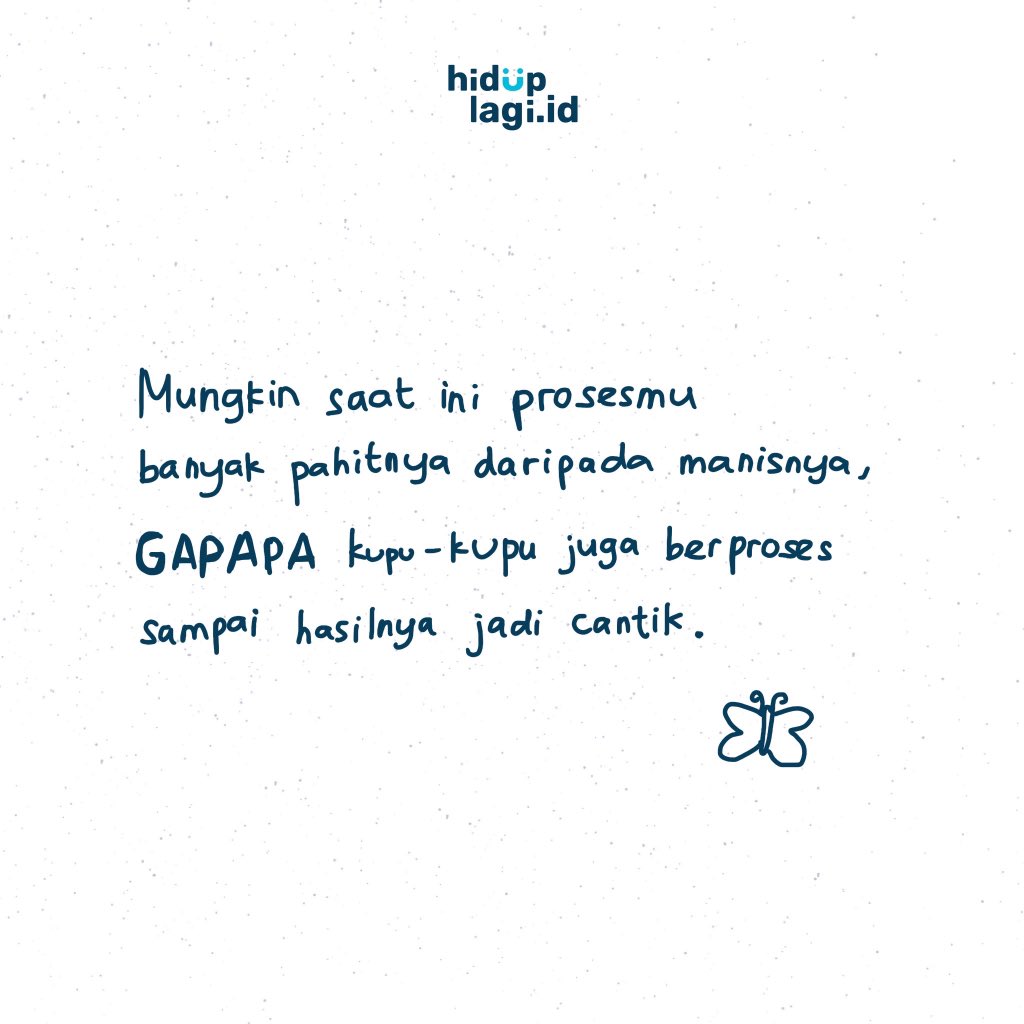 hidup
lagi.id
Mungkin saat ini prosesmu
banyak pahitnya daripada manisnya,
GAPAPA kupu-kupu juga berproses
sampai hasilnya jadi cantik.